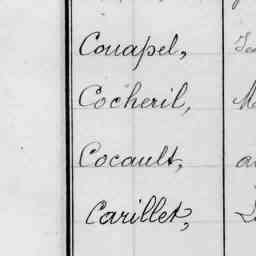 Couapel,
Cocheril,
Cocault,
Carillet,